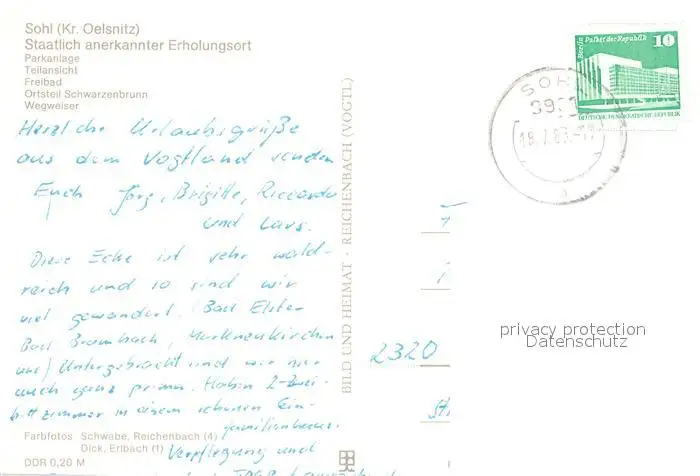 Sohl (Kr. Oelsnitz)
Staatlich anerkannter Erholungsort
Parkanlage
Teilansicht
Freibad
Ortsteil Schwarzenbrunn
Wegweiser
Herzliche Urlaubsgrüße
aus dem Vogtland senden
Euch Jörg, Brigitte, Riccardo
und Lars.
Diese Ecke ist sehr wald-
reich und so sind wir
viel gewandert. (Bad Elster
Bad Brambach, Markneukirchen
usw) Untergebracht sind wir nun
auch ganz prima. Haben 2-Zwei-
bettzimmer in einem schönen Ein-
familienhaus.
Verpflegung und
Farbfotos Schwabe, Reichenbach (4)
Dick, Erlbach (1)
DDR 0,20 M
BILD UND HEIMAT · REICHENBACH (VOGTL)
Berlin Palast der Republik
10
DEUTSCHE DEMOKRATISCHE REPUBLIK
SOHL
2320
privacy protection
Datenschutz